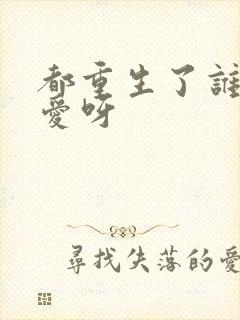 都重生了誰
愛呀
尋找失落的愛